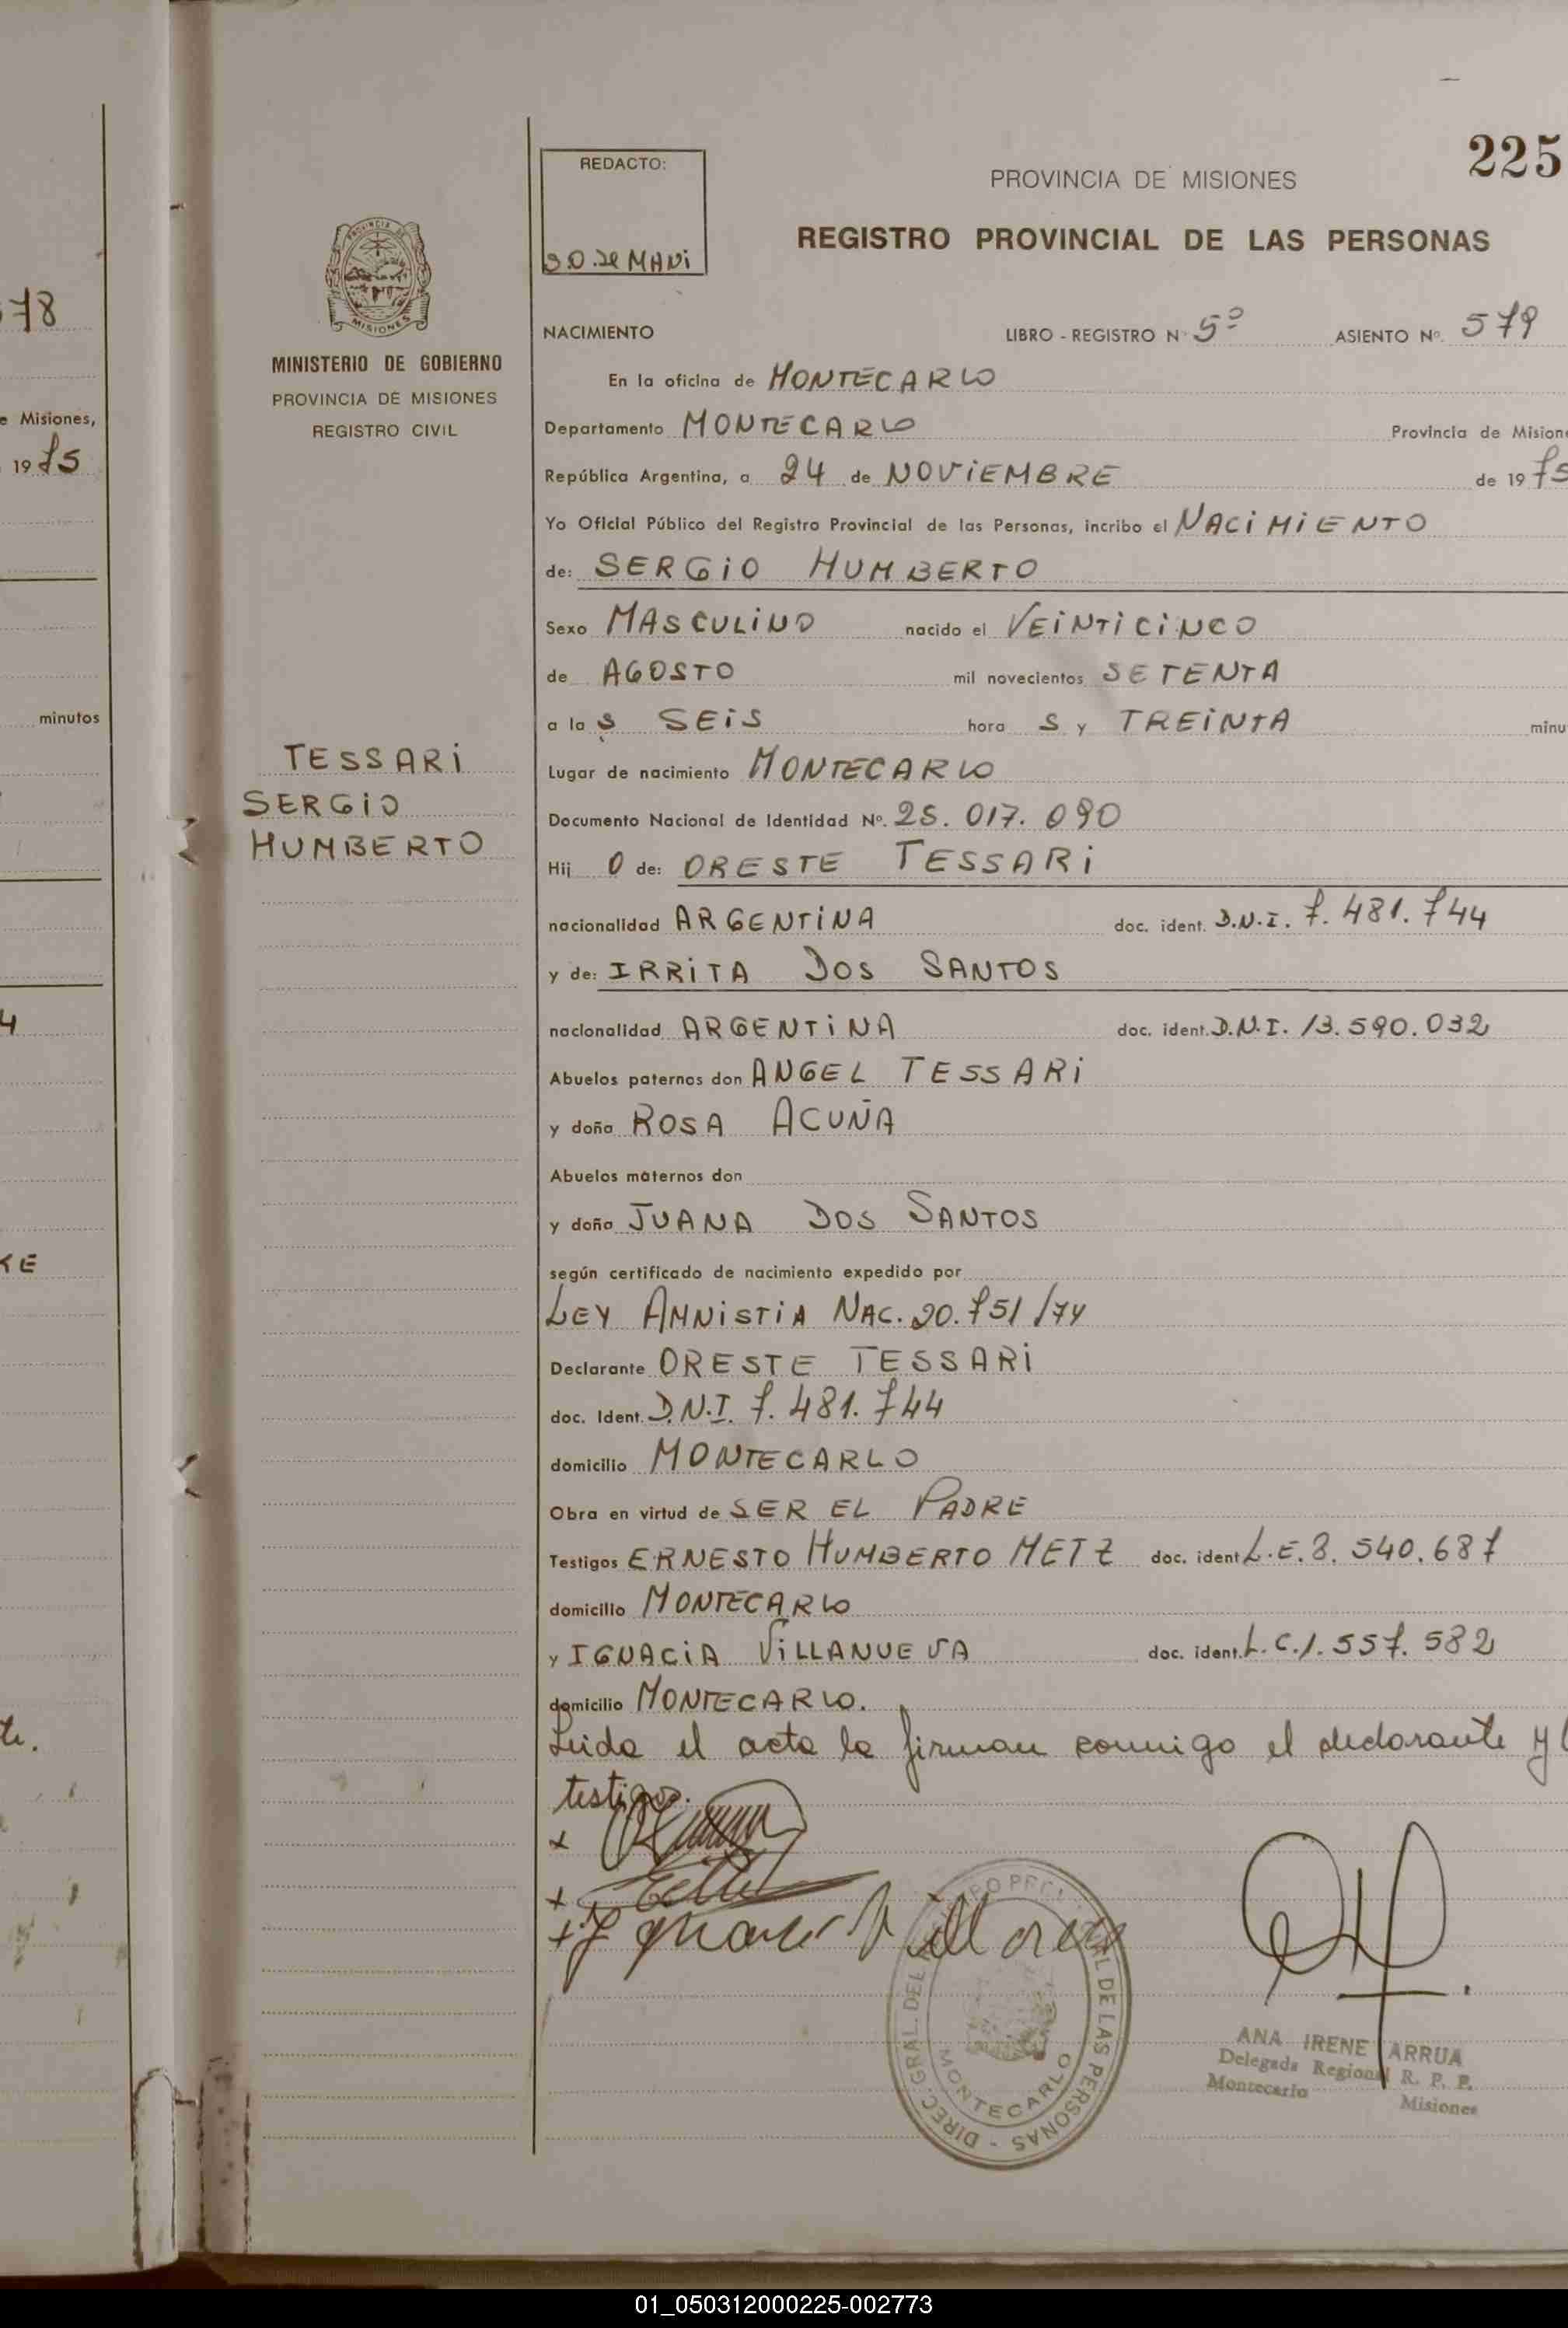 225
REDACTO:
PROVINCIA DE MISIONES
REGISTRO PROVINCIAL DE LAS PERSONAS
MISIONES
MINISTERIO DE GOBIERNO
PROVINCIA DE MISIONES
REGISTRO CIVIL
78
e Misiones,
1975
minutos
4
KE
NACIMIENTO LIBRO - REGISTRO Nº 5º ASIENTO Nº. 579
En la oficina de MONTECARLO
Departamento MONTECARLO Provincia de Mision
República Argentina, a 24 de NOViEMBRE de 1975
Yo Oficial Público del Registro Provincial de las Personas, incribo el NACiMiENTO
de: SERGiO HUMBERTO
Sexo MASCULiNO nacido el VEiNTiCiNCO
de AGOSTO mil novecientos SETENTA
a la s SEiS hora s y TREiNTA minu
TESSARi
SERGiO
HUMBERTO
Lugar de nacimiento MONTECARLO
Documento Nacional de Identidad Nº. 25.017.090
Hij O de: ORESTE TESSARi
nacionalidad ARGENTiNA doc. ident. D.N.I. 7.481.744
y de: IRRiTA DOS SANTOS
nacionalidad ARGENTiNA doc. ident. D.N.I. 13.590.032
Abuelos paternos don ANGEL TESSARi
y doña ROSA ACUÑA
Abuelos maternos don
y doña JUANA DOS SANTOS
según certificado de nacimiento expedido por
LEY AMNiSTiA NAC. 20.751/74
Declarante ORESTE TESSARi
doc. Ident. D.N.I. 7.481.744
domicilio MONTECARLO
Obra en virtud de SER EL PADRE
Testigos ERNESTO HUMBERTO METZ doc. ident L.E. 8.540.687
domicilio MONTECARLO
y IGNACiA ViLLANUEVA doc. ident. L.C. 1.557.582
domicilio MONTECARLO.
Leida el acta la firman conmigo el declarante y l
testigos.
DIREC. GRAL. DEL DE LAS PERSONAS
MONTECARLO
ANA IRENE ARRUA
Delegada Regional R. P. P.
Montecarlo Misiones
01_050312000225-002773